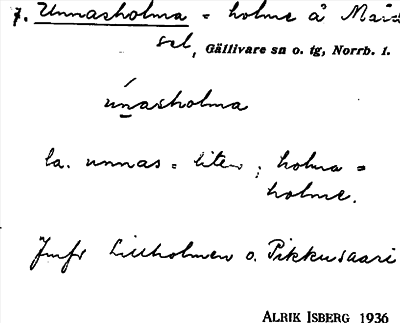 7. Unnasholma = holme å
sel, Gällivare sn o. tg, Norrb. l.
únasholma
la. unnas = liten; holma =
holme.
Jmfr Lillholmen o. Pikkusaari
ALRIK ISBERG 1936